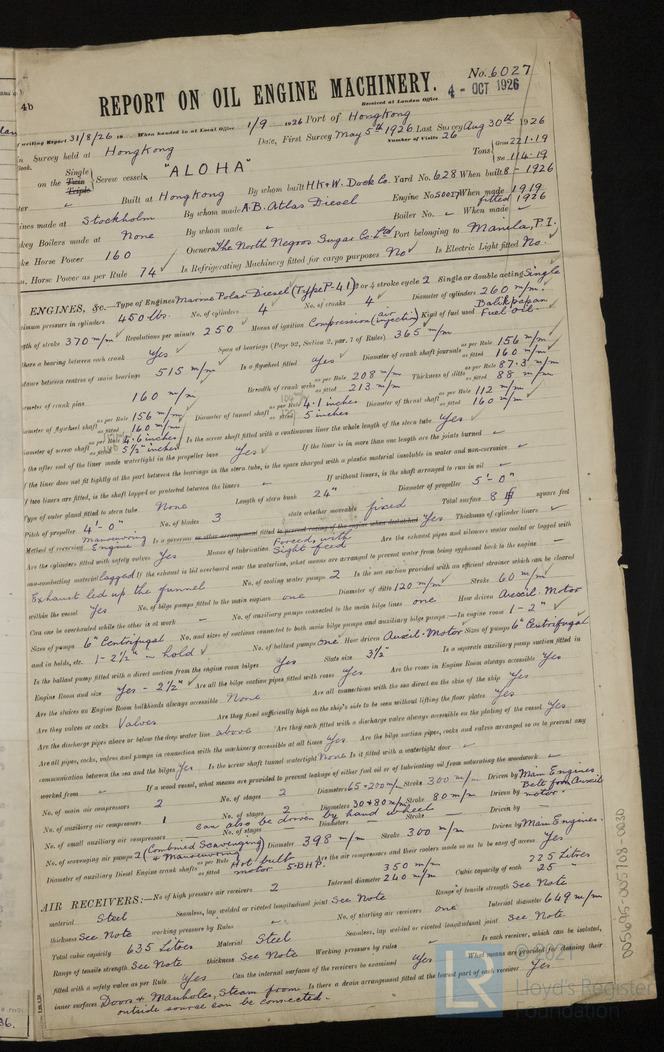 4b
No. 6027
REPORT ON OIL ENGINE MACHINERY.
Received at London Office 4 - OCT 1926
writing Report 31/8/26 19 When handed in at Local Office 1/9 1926 Port of Hongkong
Survey held at Hongkong Date, First Survey May 5th 1926 Last Survey Aug 30th 1926
Number of Visits 26
on the Single Twin Triple Screw vessels "ALOHA" Tons Gross 221.19 Net 114.19
Built at Hongkong By whom built H.K. & W. Dock Co. Yard No. 628 When built 8-1926
made at Stockholm By whom made A.B. Atlas Diesel Engine No. 50017 When made 1919 fitted 1926
Boilers made at None By whom made Boiler No. When made
Horse Power 160 Owners The North Negros Sugar Co. Ltd Port belonging to Manila, P.I.
Horse Power as per Rule 74 Is Refrigerating Machinery fitted for cargo purposes No Is Electric Light fitted No.
ENGINES, &c.—Type of Engines Marine Polar Diesel (Type P-41) 2 or 4 stroke cycle 2 Single or double acting Single
pressure in cylinders 450 lbs. No. of cylinders 4 No. of cranks 4 Diameter of cylinders 260 m/m.
of stroke 370 m/m Revolutions per minute 250 Means of ignition Compression (air injection) Kind of fuel used Balikpapan Fuel Oil.
there a bearing between each crank Yes Span of bearings (Page 92, Section 2, par. 7 of Rules) 365 m/m
between centres of main bearings 515 m/m Is a flywheel fitted Yes Diameter of crank shaft journals as per Rule 156 m/m as fitted 160 m/m
of crank pins 160 m/m Breadth of crank webs as per Rule 208 m/m as fitted 213 m/m Thickness of ditto as per Rule 87.3 m/m as fitted 88 m/m
of flywheel shaft as per Rule 156 m/m as fitted 160 m/m Diameter of tunnel shaft as per Rule 4.1 inches as fitted 5 inches Diameter of thrust shaft as per Rule 112 m/m as fitted 160 m/m
of screw shaft as per Rule 4.6 inches as fitted 5 1/2 inches Is the screw shaft fitted with a continuous liner the whole length of the stern tube Yes
the after end of the liner made watertight in the propeller boss Yes If the liner is in more than one length are the joints burned
the liner does not fit tightly at the part between the bearings in the stern tube, is the space charged with a plastic material insoluble in water and non-corrosive
If two liners are fitted, is the shaft lapped or protected between the liners If without liners, is the shaft arranged to run in oil
Type of outer gland fitted to stern tube None Length of stern bush 24" Diameter of propeller 5'-0"
Pitch of propeller 4'-0" No. of blades 3 state whether moveable fixed Total surface 8 square feet
Method of reversing Manœuvring Engine Is a governor or other arrangement fitted to prevent racing of the engine when declutched Yes Thickness of cylinder liners
Are the cylinders fitted with safety valves Yes Means of lubrication Forced, with Sight feed Are the exhaust pipes and silencers water cooled or lagged with
non-conducting material lagged If the exhaust is led overboard near the waterline, what means are arranged to prevent water from being syphoned back to the engine
Exhaust led up the funnel No. of cooling water pumps 2 Is the sea suction provided with an efficient strainer which can be cleared
within the vessel Yes No. of bilge pumps fitted to the main engines one Diameter of ditto 120 m/m Stroke 60 m/m
Can one be overhauled while the other is at work No. of auxiliary pumps connected to the main bilge lines one How driven Auxil. Motor
Sizes of pumps 6" Centrifugal No. and sizes of suctions connected to both main bilge pumps and auxiliary bilge pumps:—In engine room 1-2"
and in holds, etc. 1-2½" - hold No. of ballast pumps one How driven Auxil. Motor Sizes of pumps 6" Centrifugal
Is the ballast pump fitted with a direct suction from the engine room bilges Yes State size 3½ Is a separate auxiliary pump suction fitted in
Engine Room and size Yes - 2½" Are all the bilge suction pipes fitted with roses Yes Are the roses in Engine Room always accessible Yes
Are the sluices on Engine Room bulkheads always accessible None Are all connections with the sea direct on the skin of the ship Yes
Are they valves or cocks Valves Are they fixed sufficiently high on the ship's side to be seen without lifting the floor plates Yes
Are the discharge pipes above or below the deep water line above Are they each fitted with a discharge valve always accessible on the plating of the vessel Yes
Are all pipes, cocks, valves and pumps in connection with the machinery accessible at all times Yes Are the bilge suction pipes, cocks and valves arranged so as to prevent any
communication between the sea and the bilges Yes Is the screw shaft tunnel watertight None Is it fitted with a watertight door
worked from If a wood vessel, what means are provided to prevent leakage of either fuel oil or of lubricating oil from saturating the woodwork
No. of main air compressors 2 No. of stages 2 Diameters 65+200 m/m Stroke 300 m/m Driven by Main Engines
No. of auxiliary air compressors 1 No. of stages 2 Diameters 30+80 m/m Stroke 80 m/m Driven by Belt from Auxil motor.
No. of small auxiliary air compressors can also be driven by hand wheel No. of stages Diameters Stroke Driven by
No. of scavenging air pumps 2 (Combined Scavenging & Manœuvring) Diameter 398 m/m Stroke 300 m/m Driven by Main Engines.
Diameter of auxiliary Diesel Engine crank shafts as per Rule Hot bulb as fitted motor 5-BHP. Are the air compressors and their coolers made so as to be easy of access Yes
AIR RECEIVERS:—No. of high pressure air receivers 2 Internal diameter 350 m/m 240 m/m Cubic capacity of each 225 Litres 25 "
material Steel Seamless, lap welded or riveted longitudinal joint See Note Range of tensile strength See Note
thickness See Note working pressure by Rules No. of starting air receivers one Internal diameter 649 m/m
Total cubic capacity 635 Litres Material Steel Seamless, lap welded or riveted longitudinal joint See Note
Range of tensile strength See Note thickness See Note Working pressure by rules Is each receiver, which can be isolated,
fitted with a safety valve as per Rule Yes Can the internal surfaces of the receivers be examined Yes What means are provided for cleaning their
inner surfaces Doors & Manholes, Steam from outside source can be connected. Is there a drain arrangement fitted at the lowest part of each receiver Yes
005695-005708-0030
© 2021
LR
Lloyd's Register
Foundation